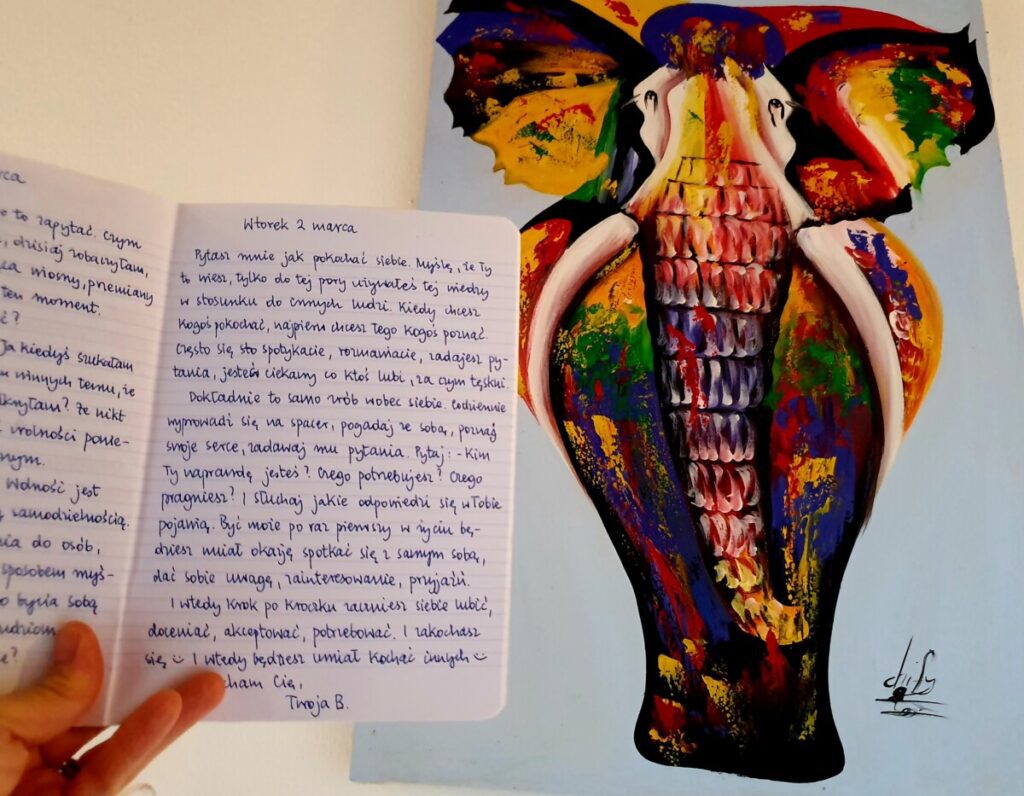 rca
o to zapytać. Czym
, dzisiaj zobaczyłam,
ka wiosny, przemiany
ten moment.
ć?
Ja kiedyś szukałam
u winnych temu, że
knęłam? Że nikt
wolności ponie-
nym.
Wolność jest
ą samodzielnością.
nia do osób,
sposobem myś-
o bycia sobą
udziom
e?
Wtorek 2 marca
Pytasz mnie jak pokochać siebie. Myślę, że Ty
to wiesz, tylko do tej pory używałeś tej wiedzy
w stosunku do innych ludzi. Kiedy chcesz
kogoś pokochać, najpierw chcesz Tego Kogoś poznać.
Często się spotykacie, rozmawiacie, zadajesz py-
tania, jesteś ciekawy co ktoś lubi, za czym tęskni.
Dokładnie to samo zrób wobec siebie. Codziennie
wyprowadź się na spacer, pogadaj ze sobą, poznaj
swoje serce, zadawaj mu pytania. Pytaj: - Kim
Ty naprawdę jesteś? Czego potrzebujesz? Czego
pragniesz? I słuchaj jakie odpowiedzi się w Tobie
pojawią. Być może po raz pierwszy w życiu bę-
dziesz miał okazję spotkać się z samym sobą,
dać sobie uwagę, zainteresowanie, przyjaźń.
I wtedy krok po kroczku zaczniesz siebie lubić,
doceniać, akceptować, potrzebować. I zakochasz
się I wtedy będziesz umiał kochać innych
cham Cię,
Twoja B.